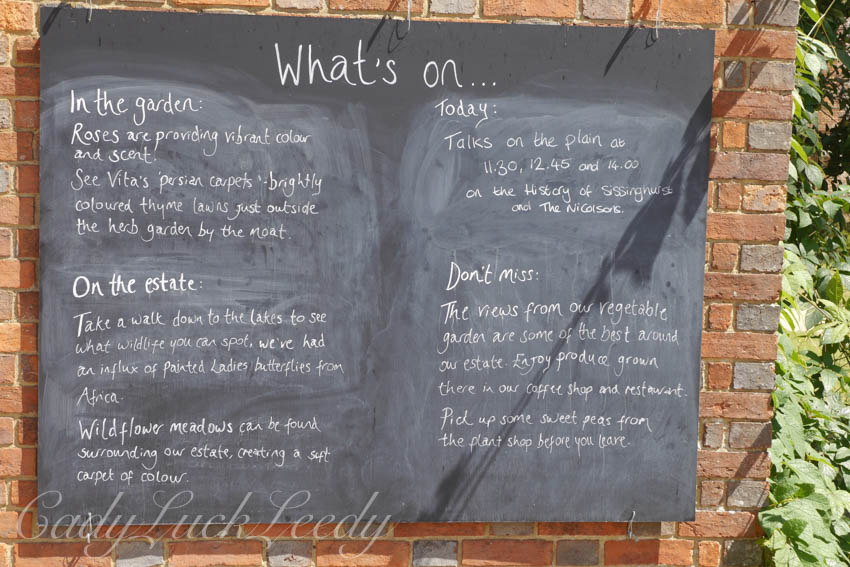 What's on...
In the garden:
Roses are providing vibrant colour
and scent.
See Vita's 'persian carpets': brightly
coloured thyme lawns just outside
the herb garden by the moat.
On the estate:
Take a walk down to the lakes to see
what wildlife you can spot, we've had
an influx of Painted Ladies butterflies from
Africa.
Wildflower meadows can be found
surrounding our estate, creating a soft
carpet of colour.
Today:
Talks on the plain at
11.30, 12.45 and 14.00
on the History of Sissinghurst
and The Nicolsons.
Don't miss:
The views from our vegetable
garden are some of the best around
our estate. Enjoy produce grown
there in our coffee shop and restaurant.
Pick up some sweet peas from
the plant shop before you leave.
CadyLuckLeedy